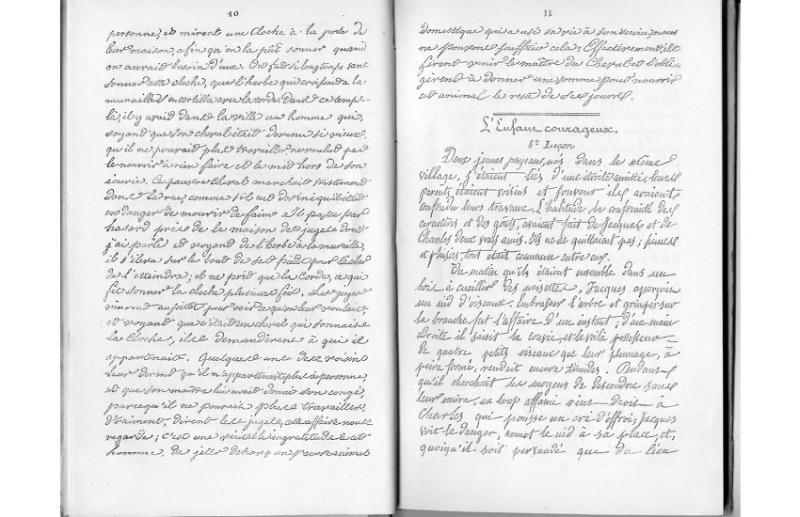 10
personne, et mirent une cloche à la porte de
leur maison, afin qu'on la pût sonner quand
on aurait besoin d'eux. On fut si longtemps sans
sonner cette cloche, que l'herbe qui croissait à la
muraille s'entortilla avec la corde. Dans ce temps-
là, il y avait dans la ville un homme qui,
voyant que son cheval était devenu si vieux
qu'il ne pouvait plus travailler, ne voulut pas
le nourrir à rien faire et le mit hors de son
écurie. Ce pauvre cheval marchait tristement
dans la rue, comme s'il eût deviné qu'il était
en danger de mourir de faim. Il passa par
hasard près de la maison de juges dont
j'ai parlé et voyant de l'herbe à la muraille,
il s'éleva sur le bout de ses pieds pour tâcher
de l'atteindre; il ne prit que la corde, ce qui
fit sonner la cloche plusieurs fois. Les juges
vinrent aussitôt pour voir ce qu'on leur voulait,
et voyant que c'était un cheval qui sonnait
la cloche, ils demandèrent à qui il
appartenait. Quelques uns des voisins
leur dirent qu'il n'appartenait plus à personne,
et que son maître lui avait donné son congé,
parcequ'il ne pouvait plus travailler.
Vraiment, dirent les juges, cette affaire nous
regarde; c'est une véritable ingratitude à cet
homme, de jeter dehors un pauvre animal
11
domestique qui a usé sa vie à son service; nous
ne pouvons souffrir cela. Effectivement, ils
firent venir le maître du cheval et l'obli-
gèrent à donner une somme pour nourrir
cet animal le reste de ses jours.
L'Enfant courageux.
8e Leçon
Deux jeunes paysans, nés dans le même
village, s'étaient liés d'une étroite amitié; leurs
parents étaient voisins et souvent ils avaient
confondu leurs travaux. L'habitude, la conformité des
caractères et des goûts, avaient fait de Jacques et de
Charles deux vrais amis. Ils ne se quittaient pas; peines
et plaisirs, tout était commun entre eux.
Un matin qu'ils étaient ensemble dans un
bois à cueillir des noisettes, Jacques aperçoit
un nid d'oiseaux. Embrasser l'arbre et grimper sur
la branche fut l'affaire d'un instant; d'une main
adroite il saisit la couvée, et le voilà possesseur
de quatre petits oiseaux que leur plumage, à
peine formé, rendait encore timides. Pendant
qu'il cherchait les moyens de descendre sans
leur nuire, un loup affamé vint droit à
Charles qui pousse un cri d'effroi; Jacques
voit le danger, remet le nid à sa place, et,
quoiqu'il soit persuadé que du lieu